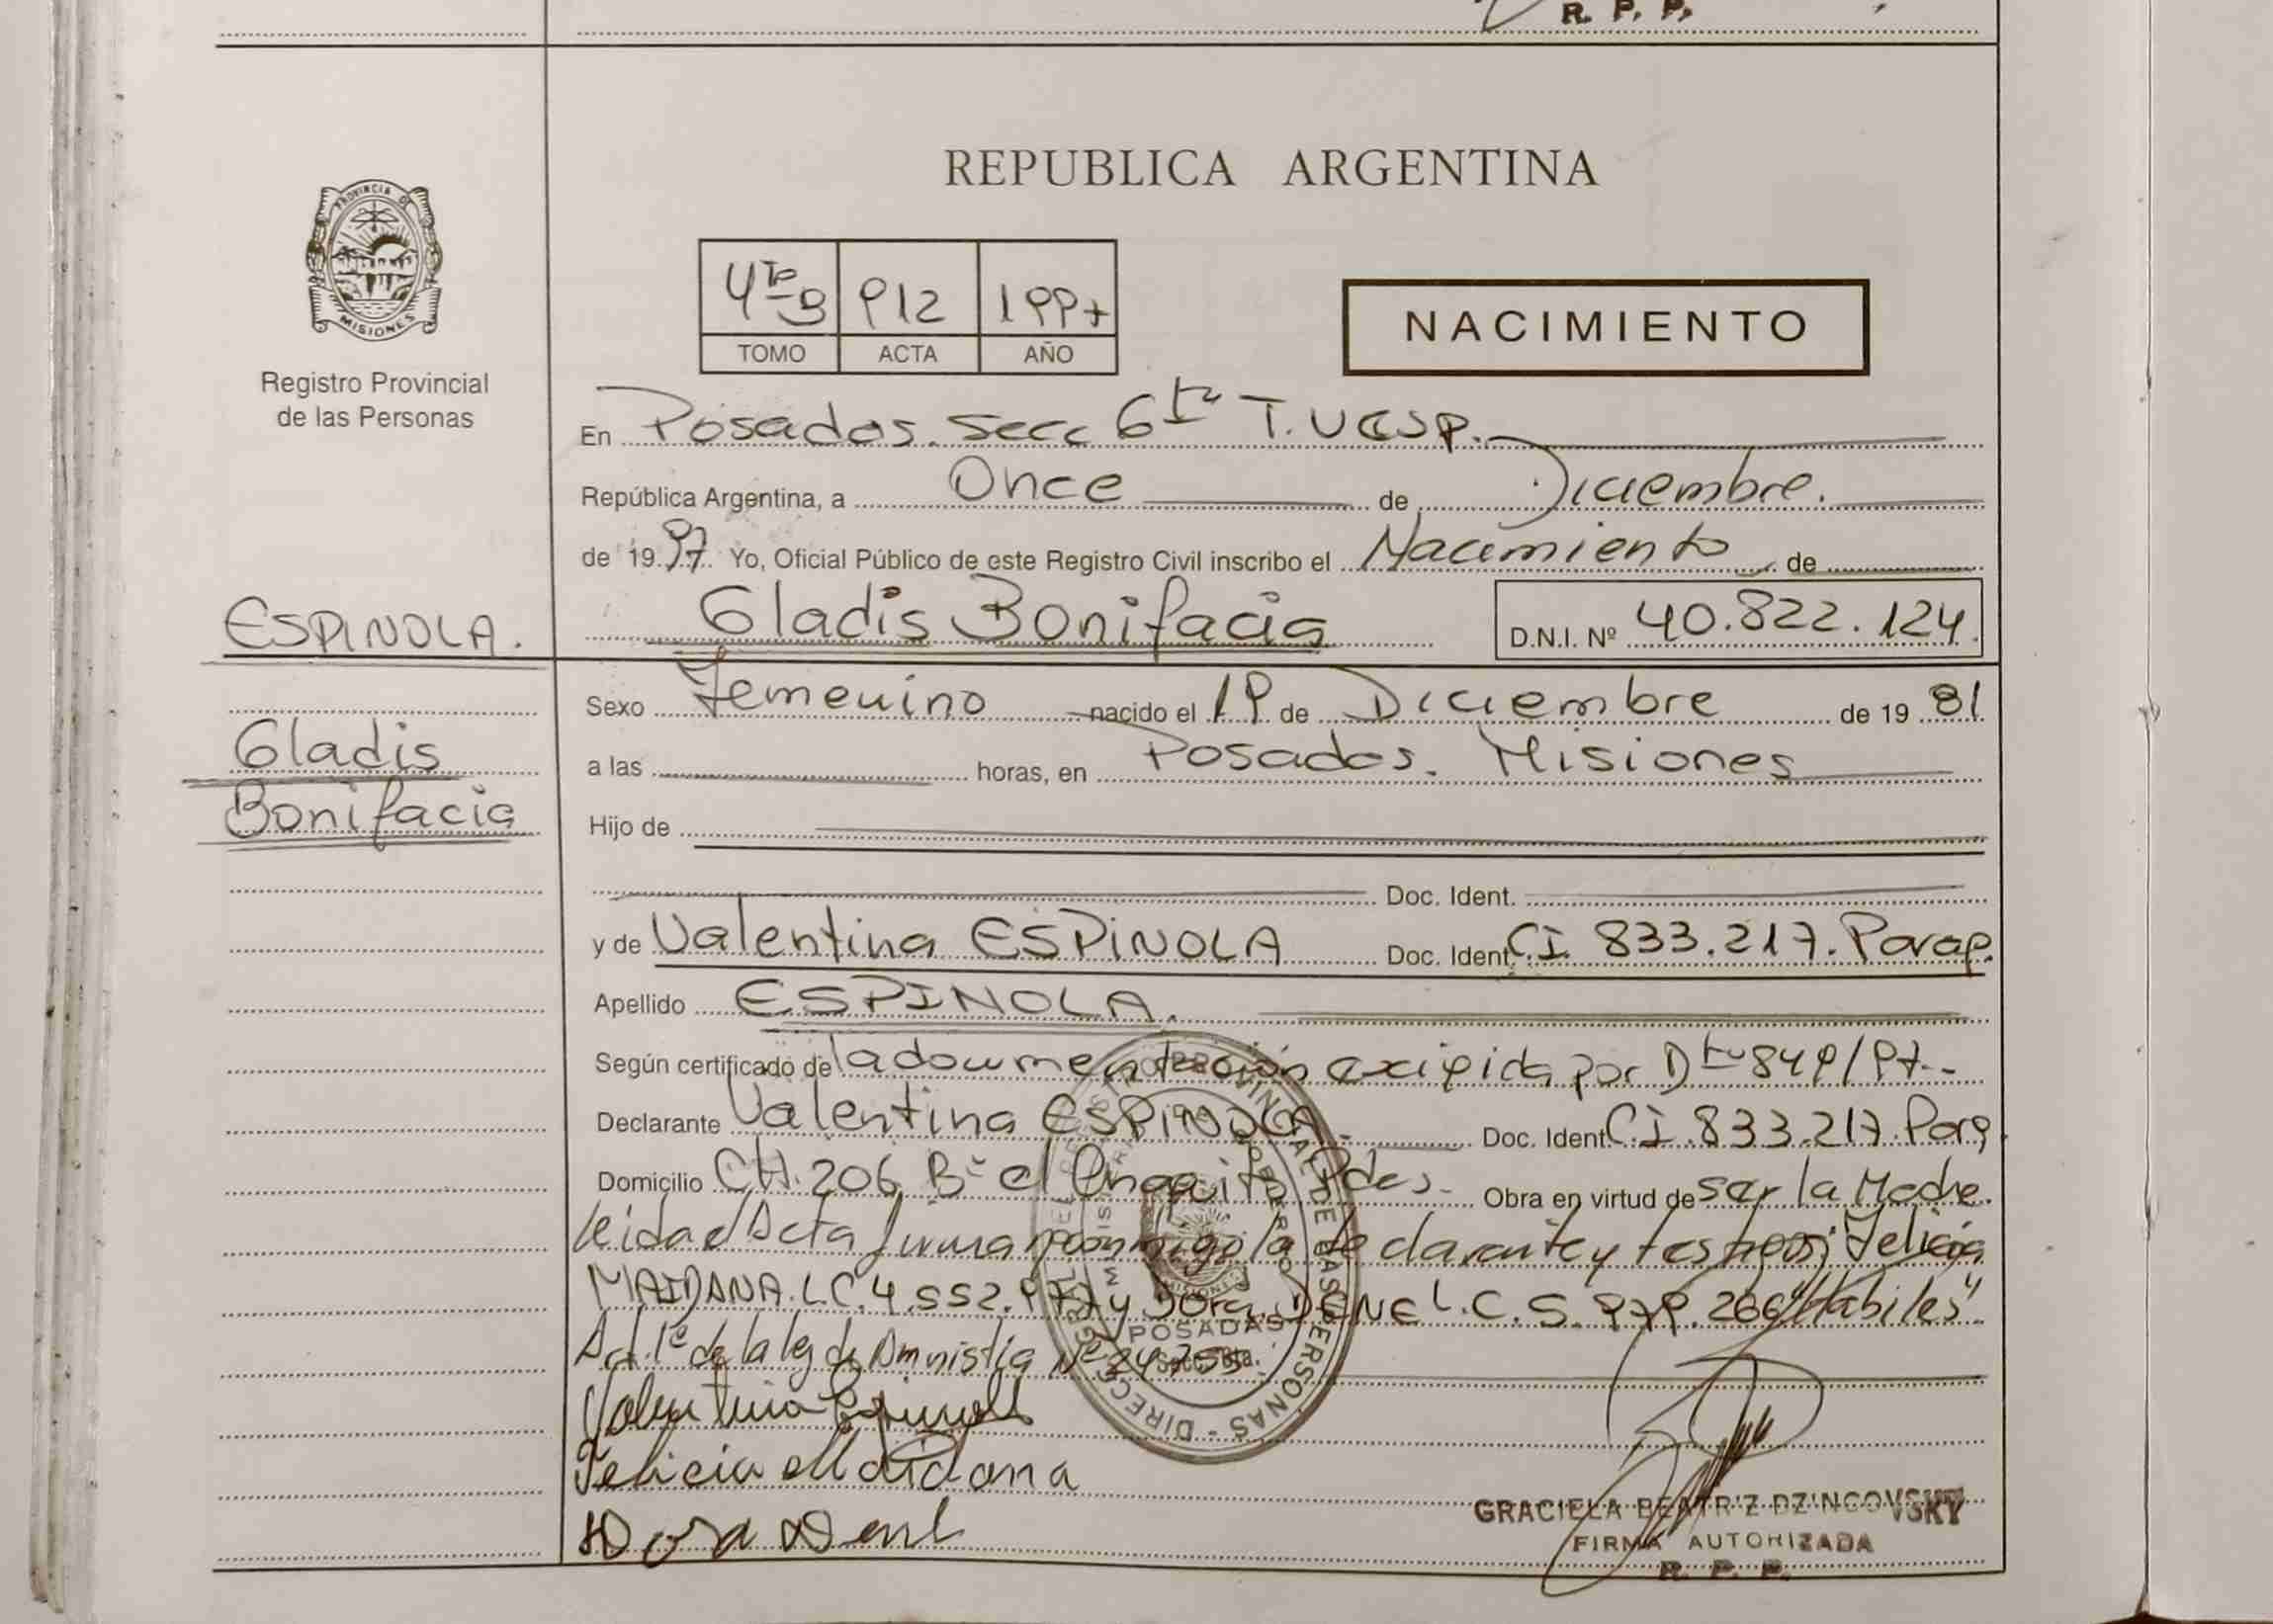 R. P. P.
PROVINCIA DE
MISIONES
Registro Provincial
de las Personas
REPUBLICA ARGENTINA
4to B 912 1997
TOMO ACTA AÑO
NACIMIENTO
En Posadas. Secc 6ta T.
República Argentina, a Once de Diciembre.
de 1997 Yo, Oficial Público de este Registro Civil inscribo el Nacimiento de
ESPINOLA.
Gladis Bonifacia D.N.I. Nº 40.822.124.
Gladis
Bonifacia
Sexo Femenino nacido el 19 de Diciembre de 19 81
a las horas, en Posadas. Misiones
Hijo de
Doc. Ident.
y de Valentina ESPINOLA Doc. Ident. C.I. 833.217. Parag.
Apellido ESPINOLA.
Según certificado de la documentación exigida por Dto 849/97.-
Declarante Valentina ESPINOLA.- Doc. Ident. C.I. 833.217. Parg
Domicilio CH. 206 Bº el Pdas. Obra en virtud de ser la Madre.
leida el Acta firman conmigo la declarante y testigos: Felicia
MAIDANA. L.C. 4.552.977 y Dora DENE L.C. 5.979.266 "Habiles"
Art. 1º de la ley de Amnistía Nº 24.755.
POSADAS
Secc. 6ta.
Valentina Espinola
Felicia Maidana
Dora
GRACIELA BEATRIZ DZINCOVSKY
FIRMA AUTORIZADA
R. P. P.